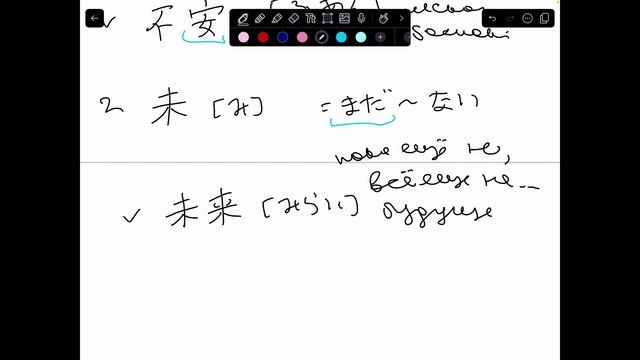 ✓ 不安
2 未 [み] = まだ～ない
пока ещё не,
всё ещё не...
✓ 未来 [みらい] будущее